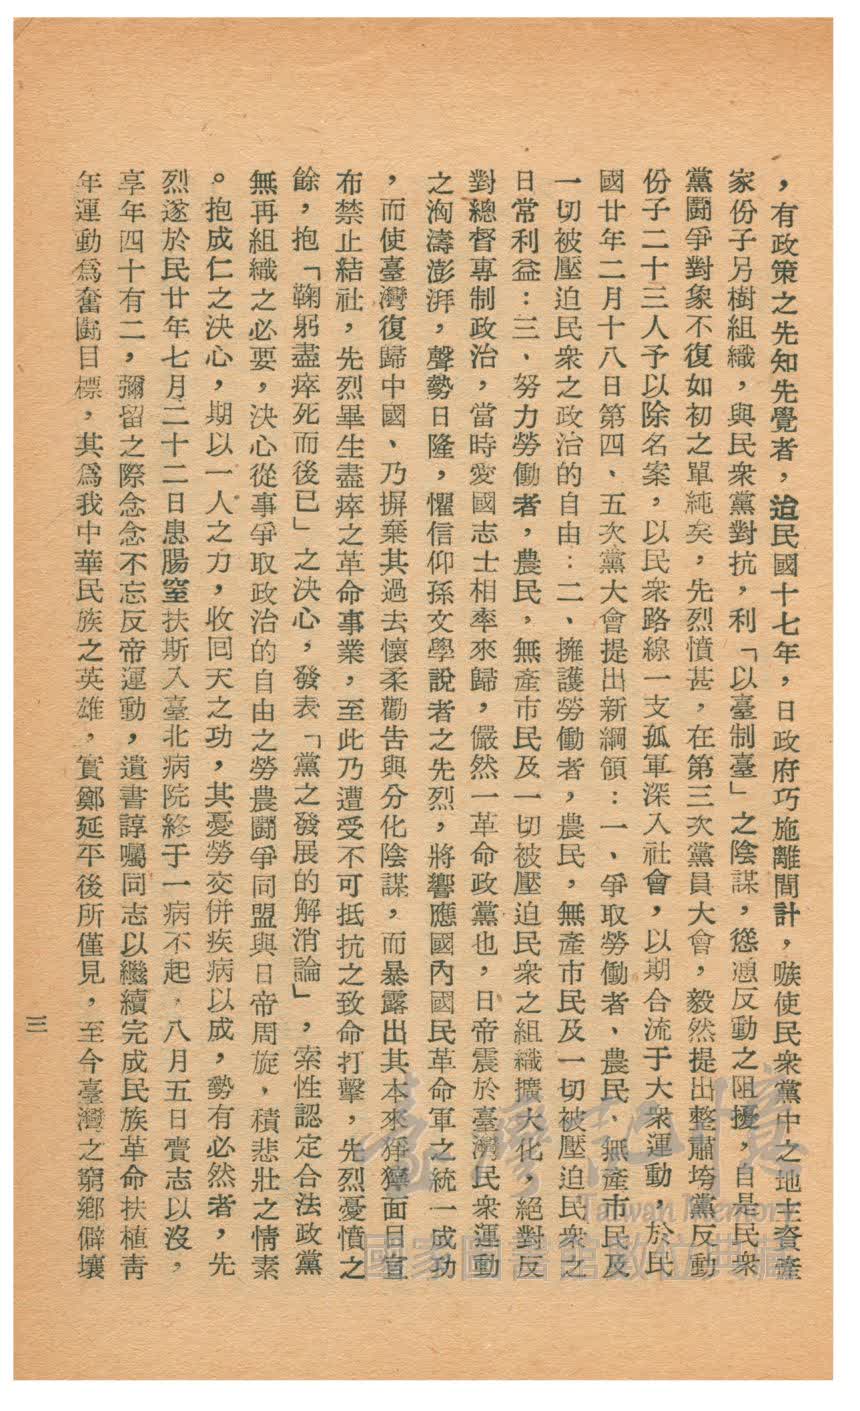 ，有政策之先知先覺者，迨民國十七年，日政府巧施離間計，嗾使民衆黨中之地主資產
家份子另樹組織，與民衆黨對抗，利「以臺制臺」之陰謀，慫慂反動之阻擾，自是民衆
黨鬪爭對象不復如初之單純矣，先烈憤甚，在第三次黨員大會，毅然提出整肅垮黨反動
份子二十三人予以除名案，以民衆路線一支孤軍深入社會，以期合流于大衆運動，於民
國廿年二月十八日第四、五次黨大會提出新綱領：一、爭取勞働者、農民、無產市民及
一切被壓迫民衆之政治的自由：二、擁護勞働者，農民，無產市民及一切被壓迫民衆之
日常利益：三、努力勞働者，農民，無產市民及一切被壓迫民衆之組織擴大化，絕對反
對總督專制政治，當時愛國志士相率來歸，儼然一革命政黨也，日帝震於臺灣民衆運動
之洶濤澎湃，聲勢日隆，懼信仰孫文學說者之先烈，將響應國內國民革命軍之統一成功
，而使臺灣復歸中國、乃摒棄其過去懷柔勸告與分化陰謀，而暴露出其本來猙獰面目宣
布禁止結社，先烈畢生盡瘁之革命事業，至此乃遭受不可抵抗之致命打擊，先烈憂憤之
餘，抱「鞠躬盡瘁死而後已」之決心，發表「黨之發展的解消論」，索性認定合法政黨
無再組織之必要，決心從事爭取政治的自由之勞農鬪爭同盟與日帝周旋，積悲壯之情素
。抱成仁之決心，期以一人之力，收回天之功，其憂勞交併疾病以成，勢有必然者，先
烈遂於民廿年七月二十二日患腸窒扶斯入臺北病院終于一病不起，八月五日賷志以沒，
享年四十有二，彌留之際念念不忘反帝運動，遺書諄囑同志以繼續完成民族革命扶植靑
年運動爲奮鬪目標，其爲我中華民族之英雄，實鄭延平後所僅見，至今臺灣之窮鄉僻壤
三
臺灣記憶
Taiwan Memory
國家圖書館數位典藏